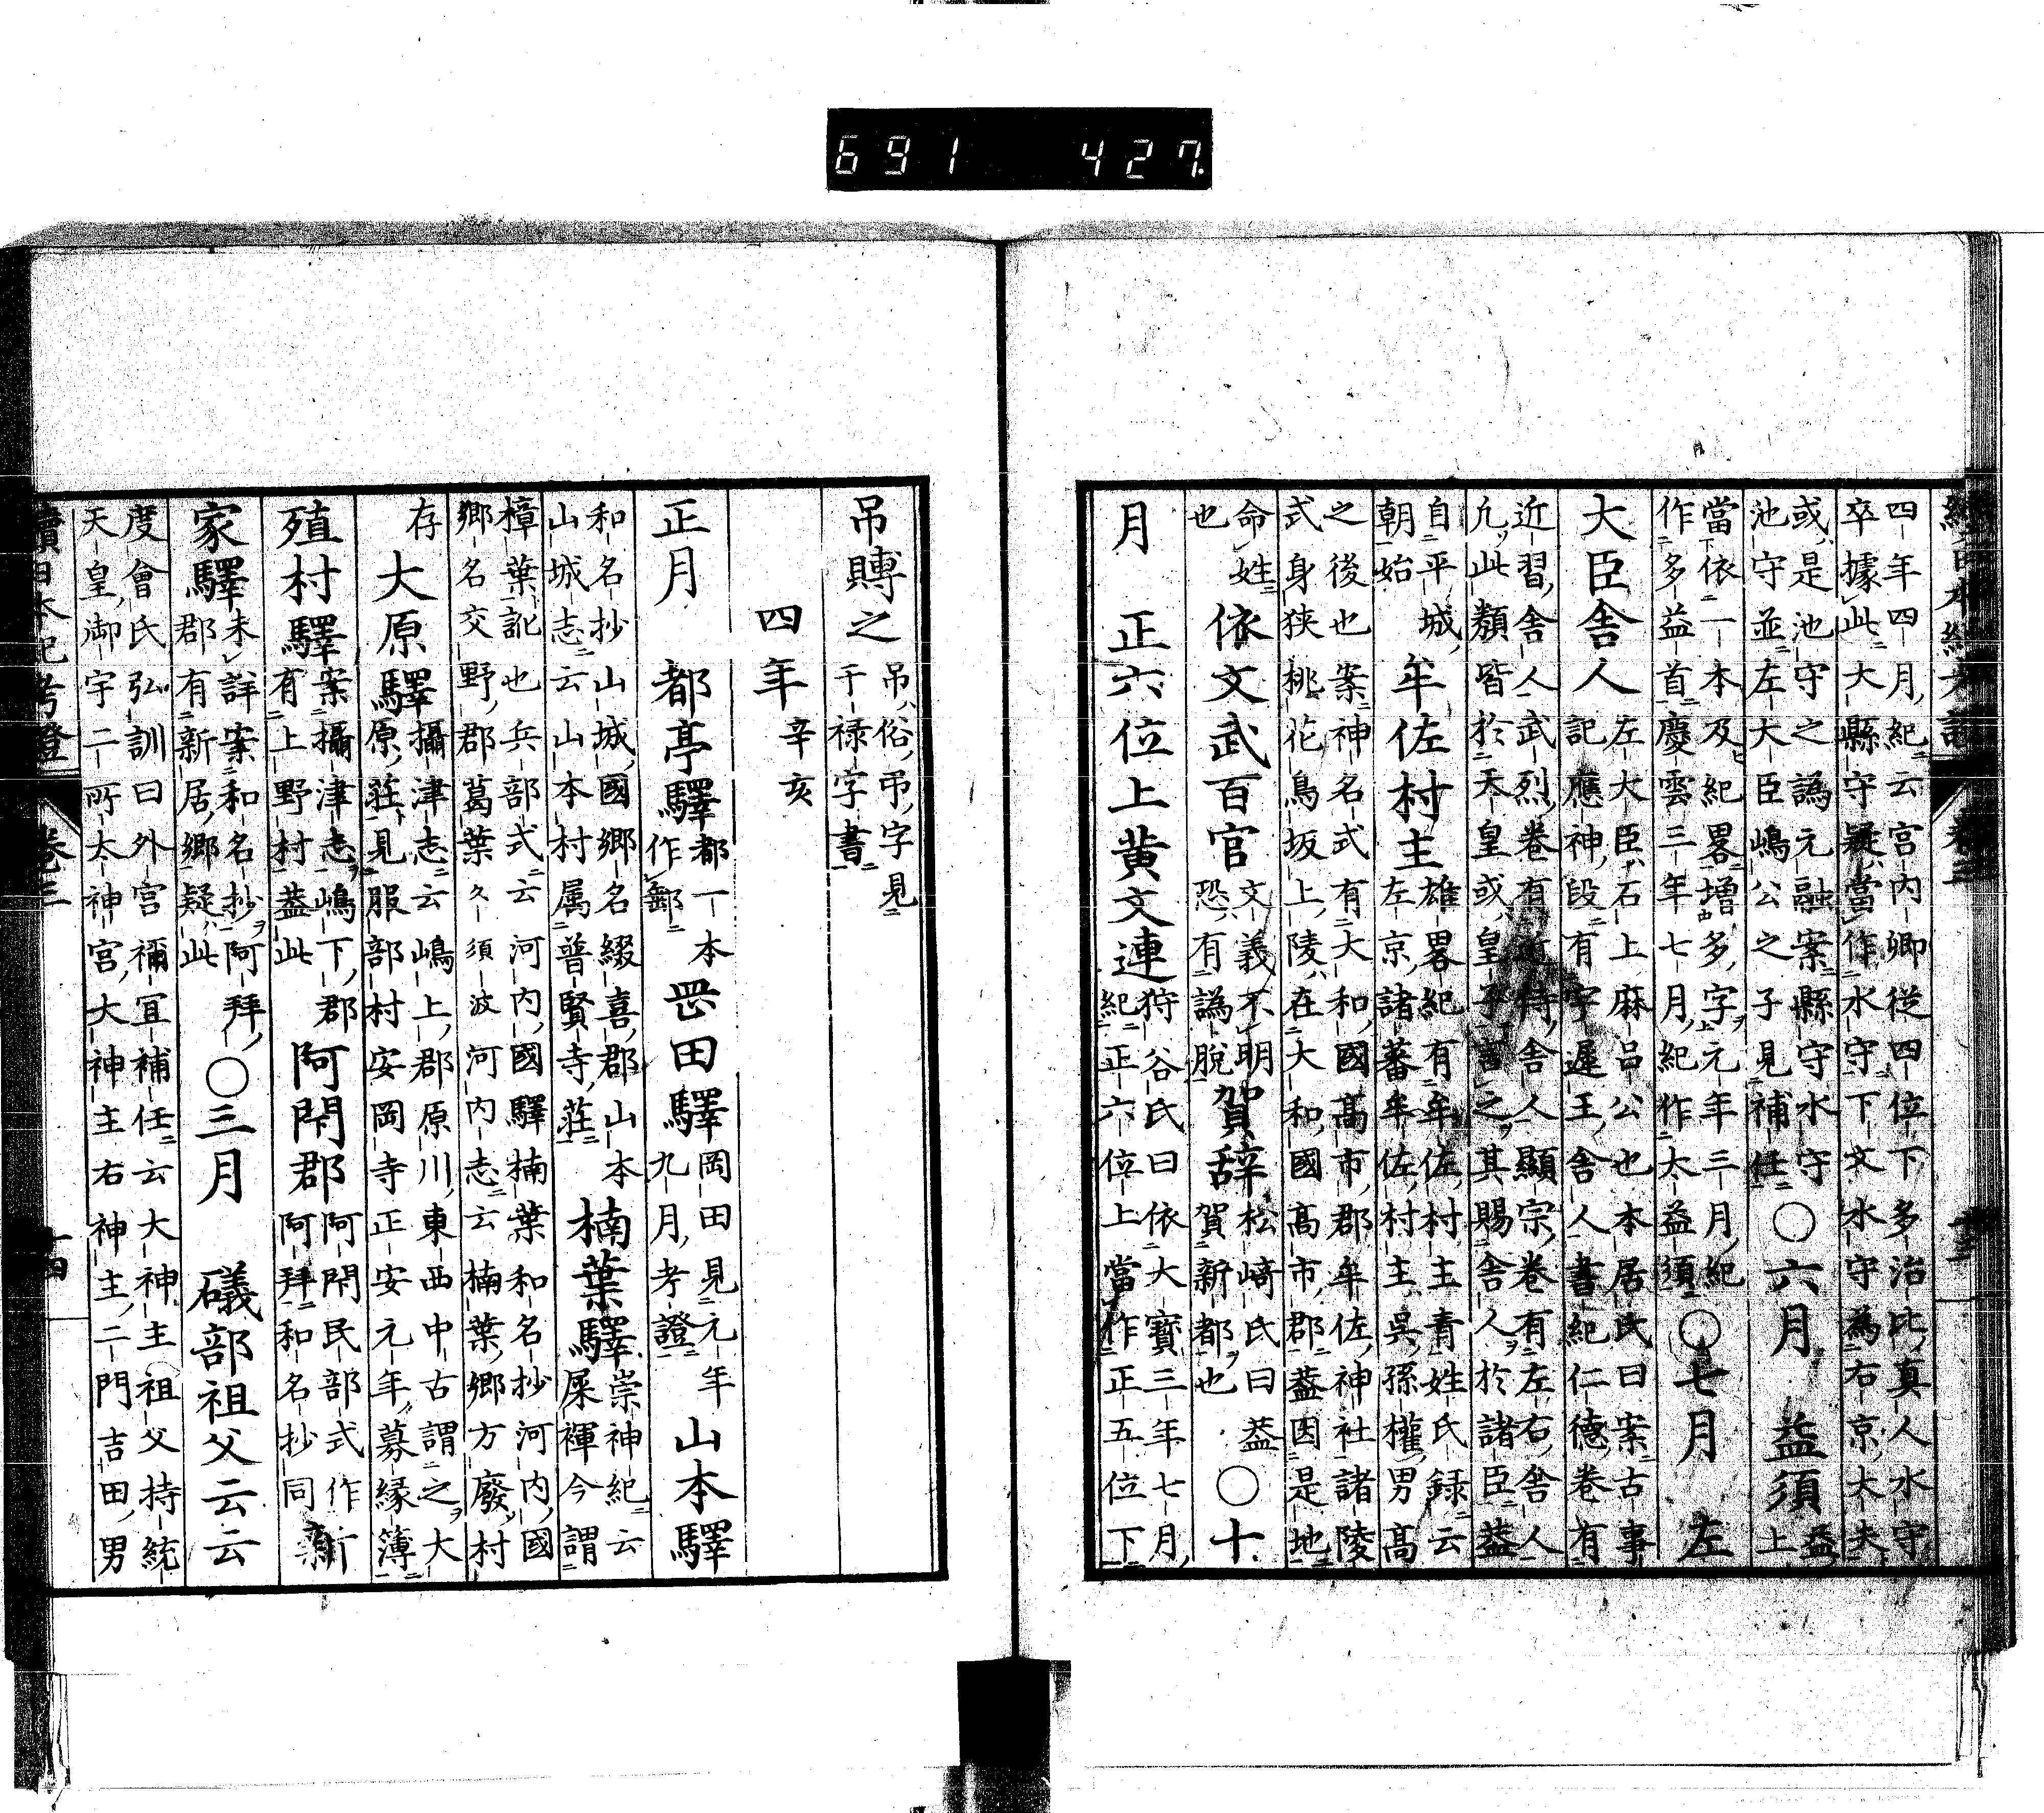 691 427
四年四月紀云宮内卿従四位下多治比真人水守
卒據此大縣守疑當作水守下文水守為右京大夫
或是池守之譌元融案縣守水守
池守並左大臣嶋公之子見補任
○六月
益須
益上
當依一本及紀畧増多字元年三月紀
作多益首慶雲三年七月紀作太益須
○七月
左
大臣舎人
左大臣石上麻呂公也本居氏曰案古事
記應神段有宇遅王舎人書紀仁德卷有
近習舎人武烈卷有近侍舎人顯宗卷有左右舎人
凢此類皆於天皇或皇子言之其賜舎人於諸臣葢
自平城
朝始
牟佐村主
雄畧紀有牟佐村主青姓氏録云
左京諸蕃牟佐村主呉孫權男高
之後也案神名式有大和國髙市郡牟佐神社諸陵
式身狭桃花鳥坂上陵在大和國髙市郡葢因是地
命姓
也
依文武百官
文義不明
恐有譌脫
賀辞
松﨑氏曰葢
賀新都也
○十
月
正六位上黄文連
狩谷氏曰依大寳三年七月
紀正六位上當作正五位下
吊賻之
吊俗弔字見
干禄字書
四年
辛亥
正月
都亭驛
都一本
作郵
岡田驛
岡田見元年
九月考證
山本驛
和名抄山城國郷名綴喜郡山本
山城志云山本村属普賢寺莊
楠葉驛
崇神紀云
屎褌今謂
樟葉訛也兵部式云河内國驛楠葉和名抄河内國
郷名交野郡葛葉久須波河内志云楠葉郷方廢村
存
大原驛
攝津志云嶋上郡原川東西中古謂之大
原莊見服部村安岡寺正安元年募縁簿
殖村驛
案攝津志嶋下郡
有上野村葢此
阿閇郡
阿閇民部式作
阿拜和名抄同
新
家驛
未詳案和名抄阿拜
郡有新居郷疑此
○三月
礒部祖父云云
度會氏弘訓曰外宮禰宜補任云大神主祖父持統
天皇御宇二所太神宮大神主右神主二門吉田男
續日本紀考證
卷三
十四